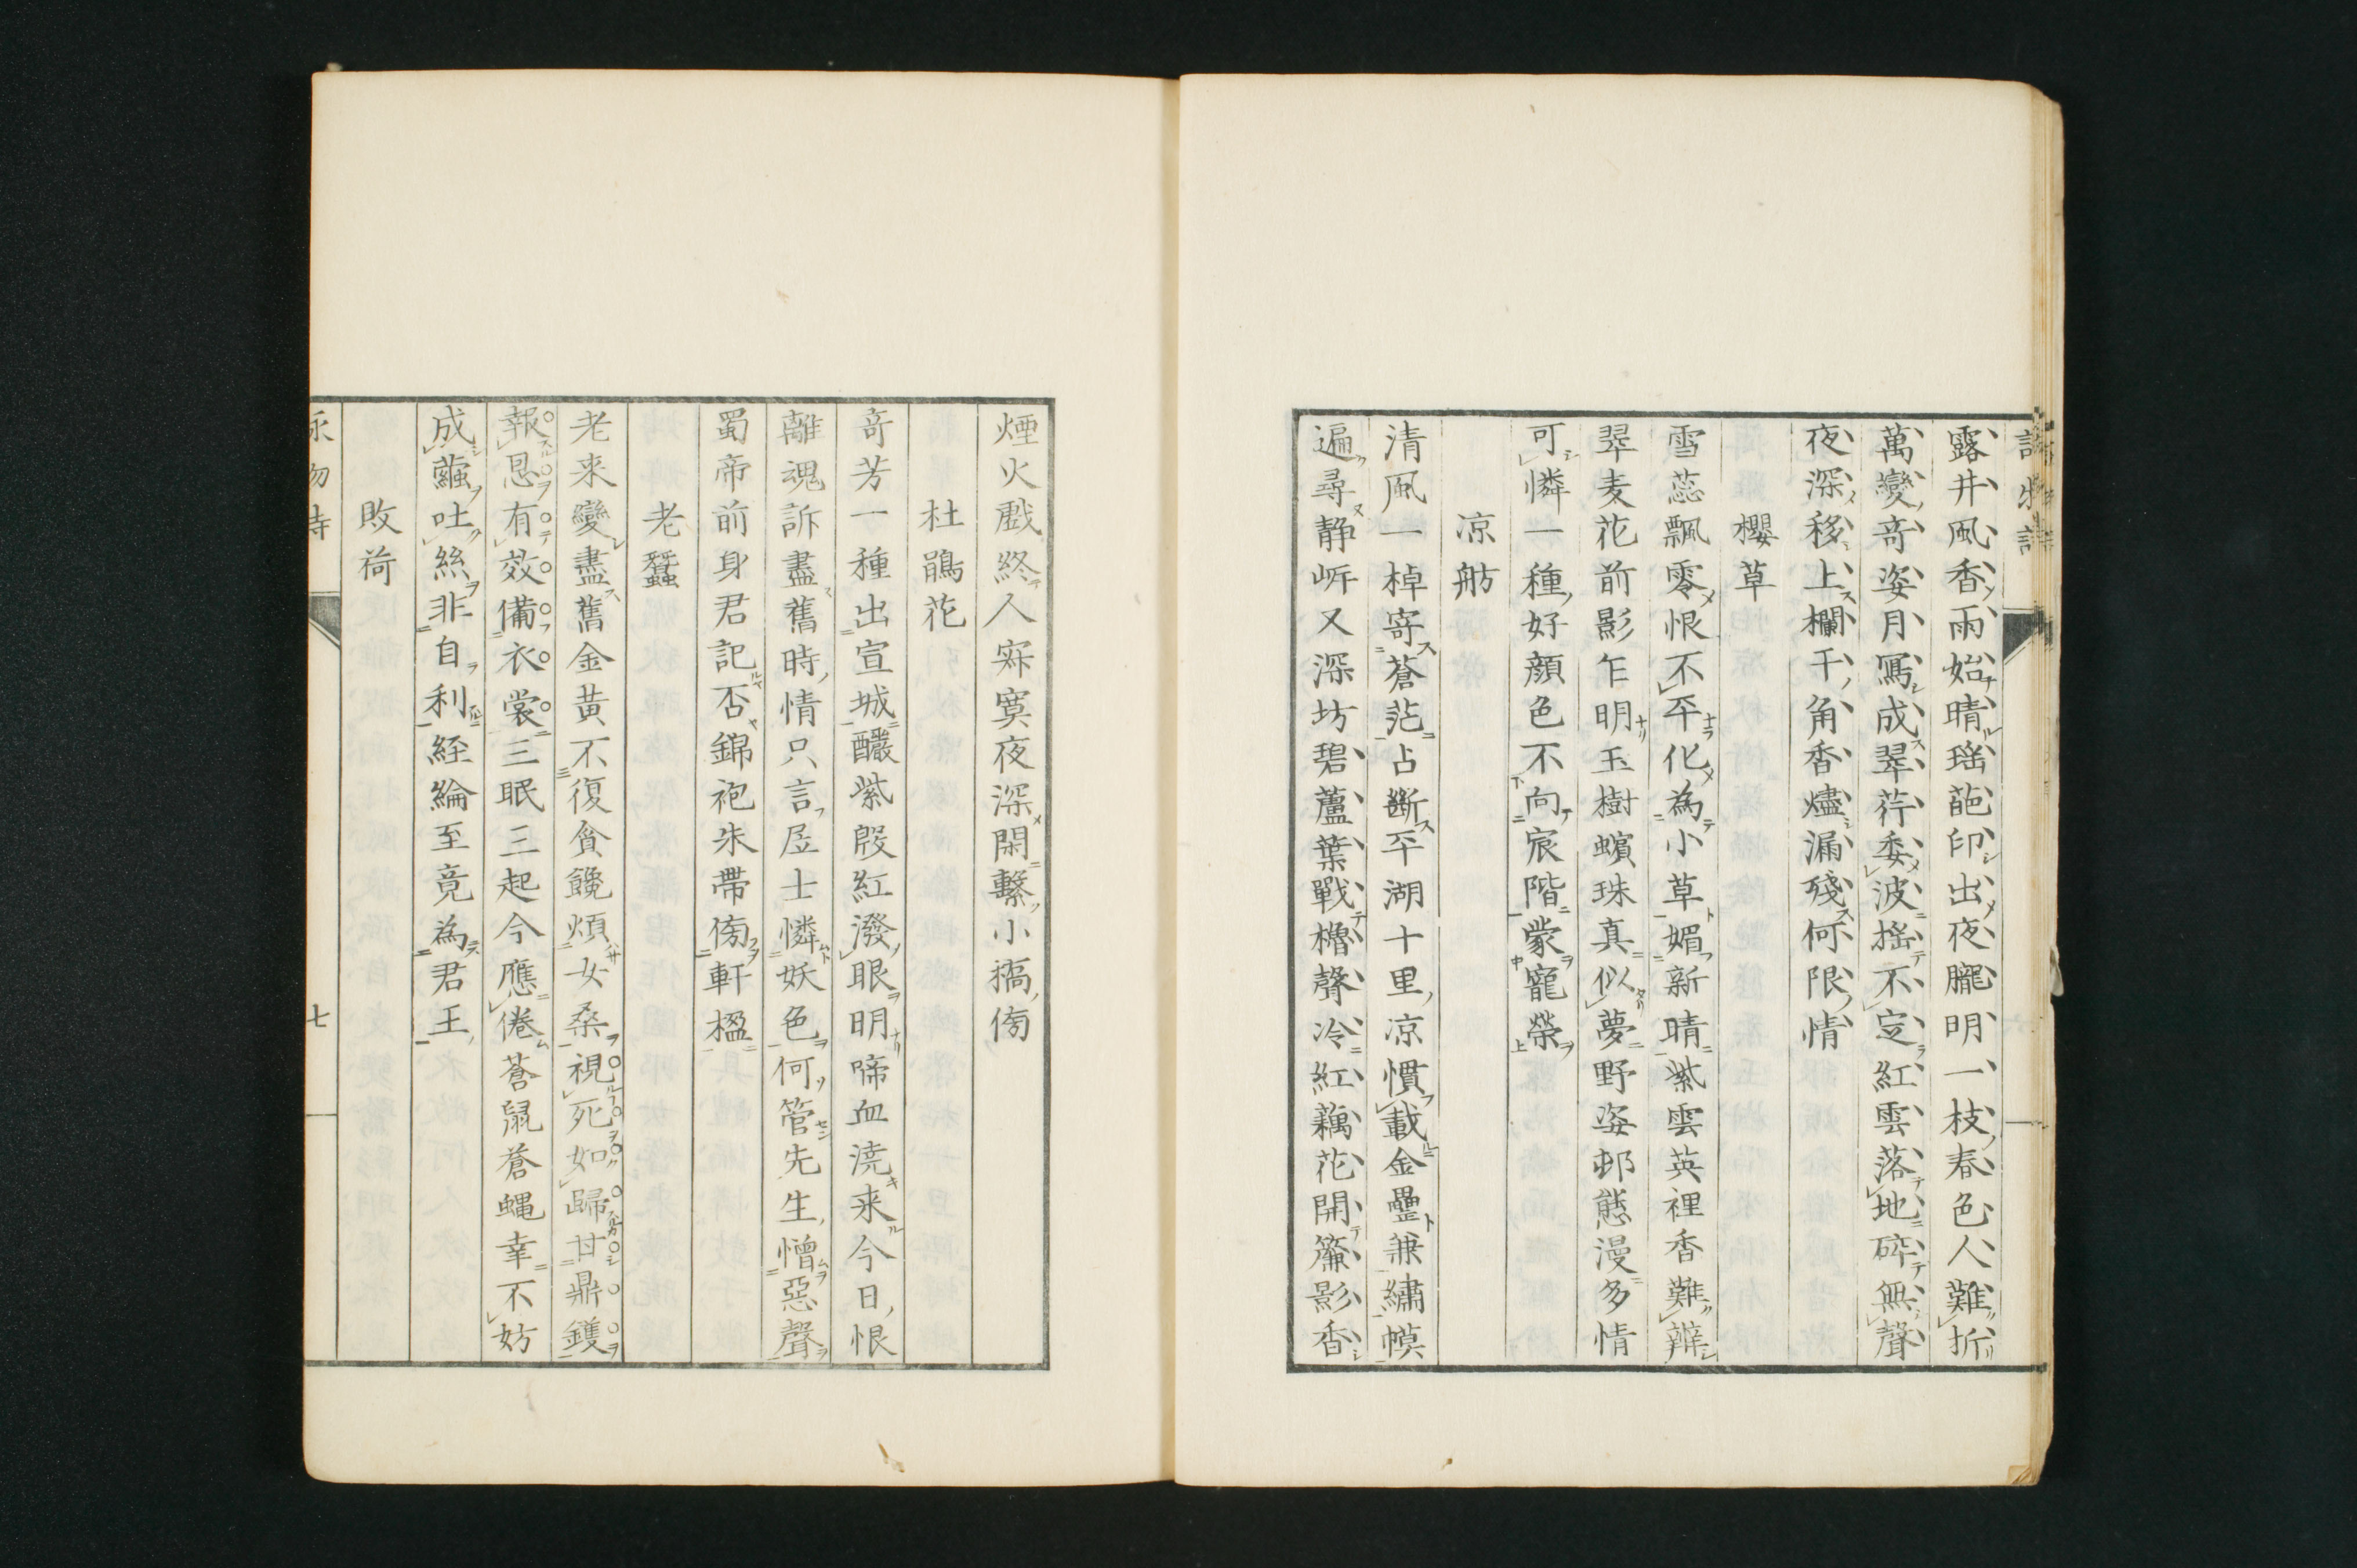 露井風香雨始晴瑶葩印出夜朧明一枝春色人難折
萬變奇姿月寫成翠荇委波揺不定紅雲落地碎無聲
夜深移上欄干角香燼漏殘何限情
櫻草
雪蕊飄零恨不平化為小草媚新晴紫雲英裡香難辨
翠麦花前影乍明玉樹蠙珠真似夢野姿邨態漫多情
可憐一種好顔色不向宸階蒙寵榮
凉舫
清風一棹寄蒼茫占斷平湖十里凉慣載金罍兼繡幙
遍尋静岍又深坊碧蘆葉戰櫓聲冷紅藕花開簾影香
煙火戯終人寂寞夜深閑繫小橋傍
杜鵑花
奇芳一種出宣城醲紫殷紅潑眼明啼血澆来今日恨
離魂訴盡舊時情只言居士憐妖色何管先生憎惡聲
蜀帝前身君記否錦袍朱帶傍軒楹
老蠶
老来變盡舊金黄不復貪饞煩女桑視死如歸甘鼎鑊
報恩有效備衣裳三眠三起今應倦蒼鼠蒼蝿幸不妨
成繭吐絲非自利経綸至竟為君王
敗荷
詠物詩
七